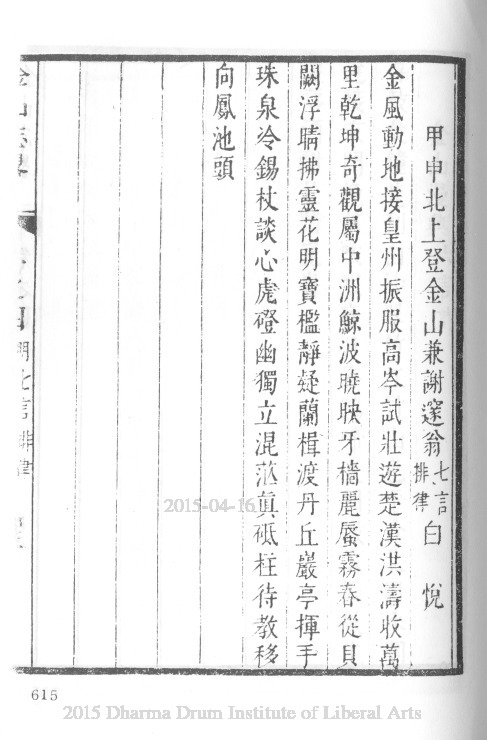 甲申北上登金山兼謝邃翁七言排律白悅
金風動地接皇州振服高岑試壯遊楚漢洪濤收萬
里乾坤奇觀屬中洲鯨波曉映牙檣麗蜃霧春從貝
闕浮晴拂靈花明寶檻靜疑蘭楫渡丹丘巖亭揮手
珠泉冷錫杖談心虎磴幽獨立混茫真砥柱待教移
向鳳池頭
明七言排律
2015-04-16
615
2015 Dharma Drum Institute of Liberal Arts